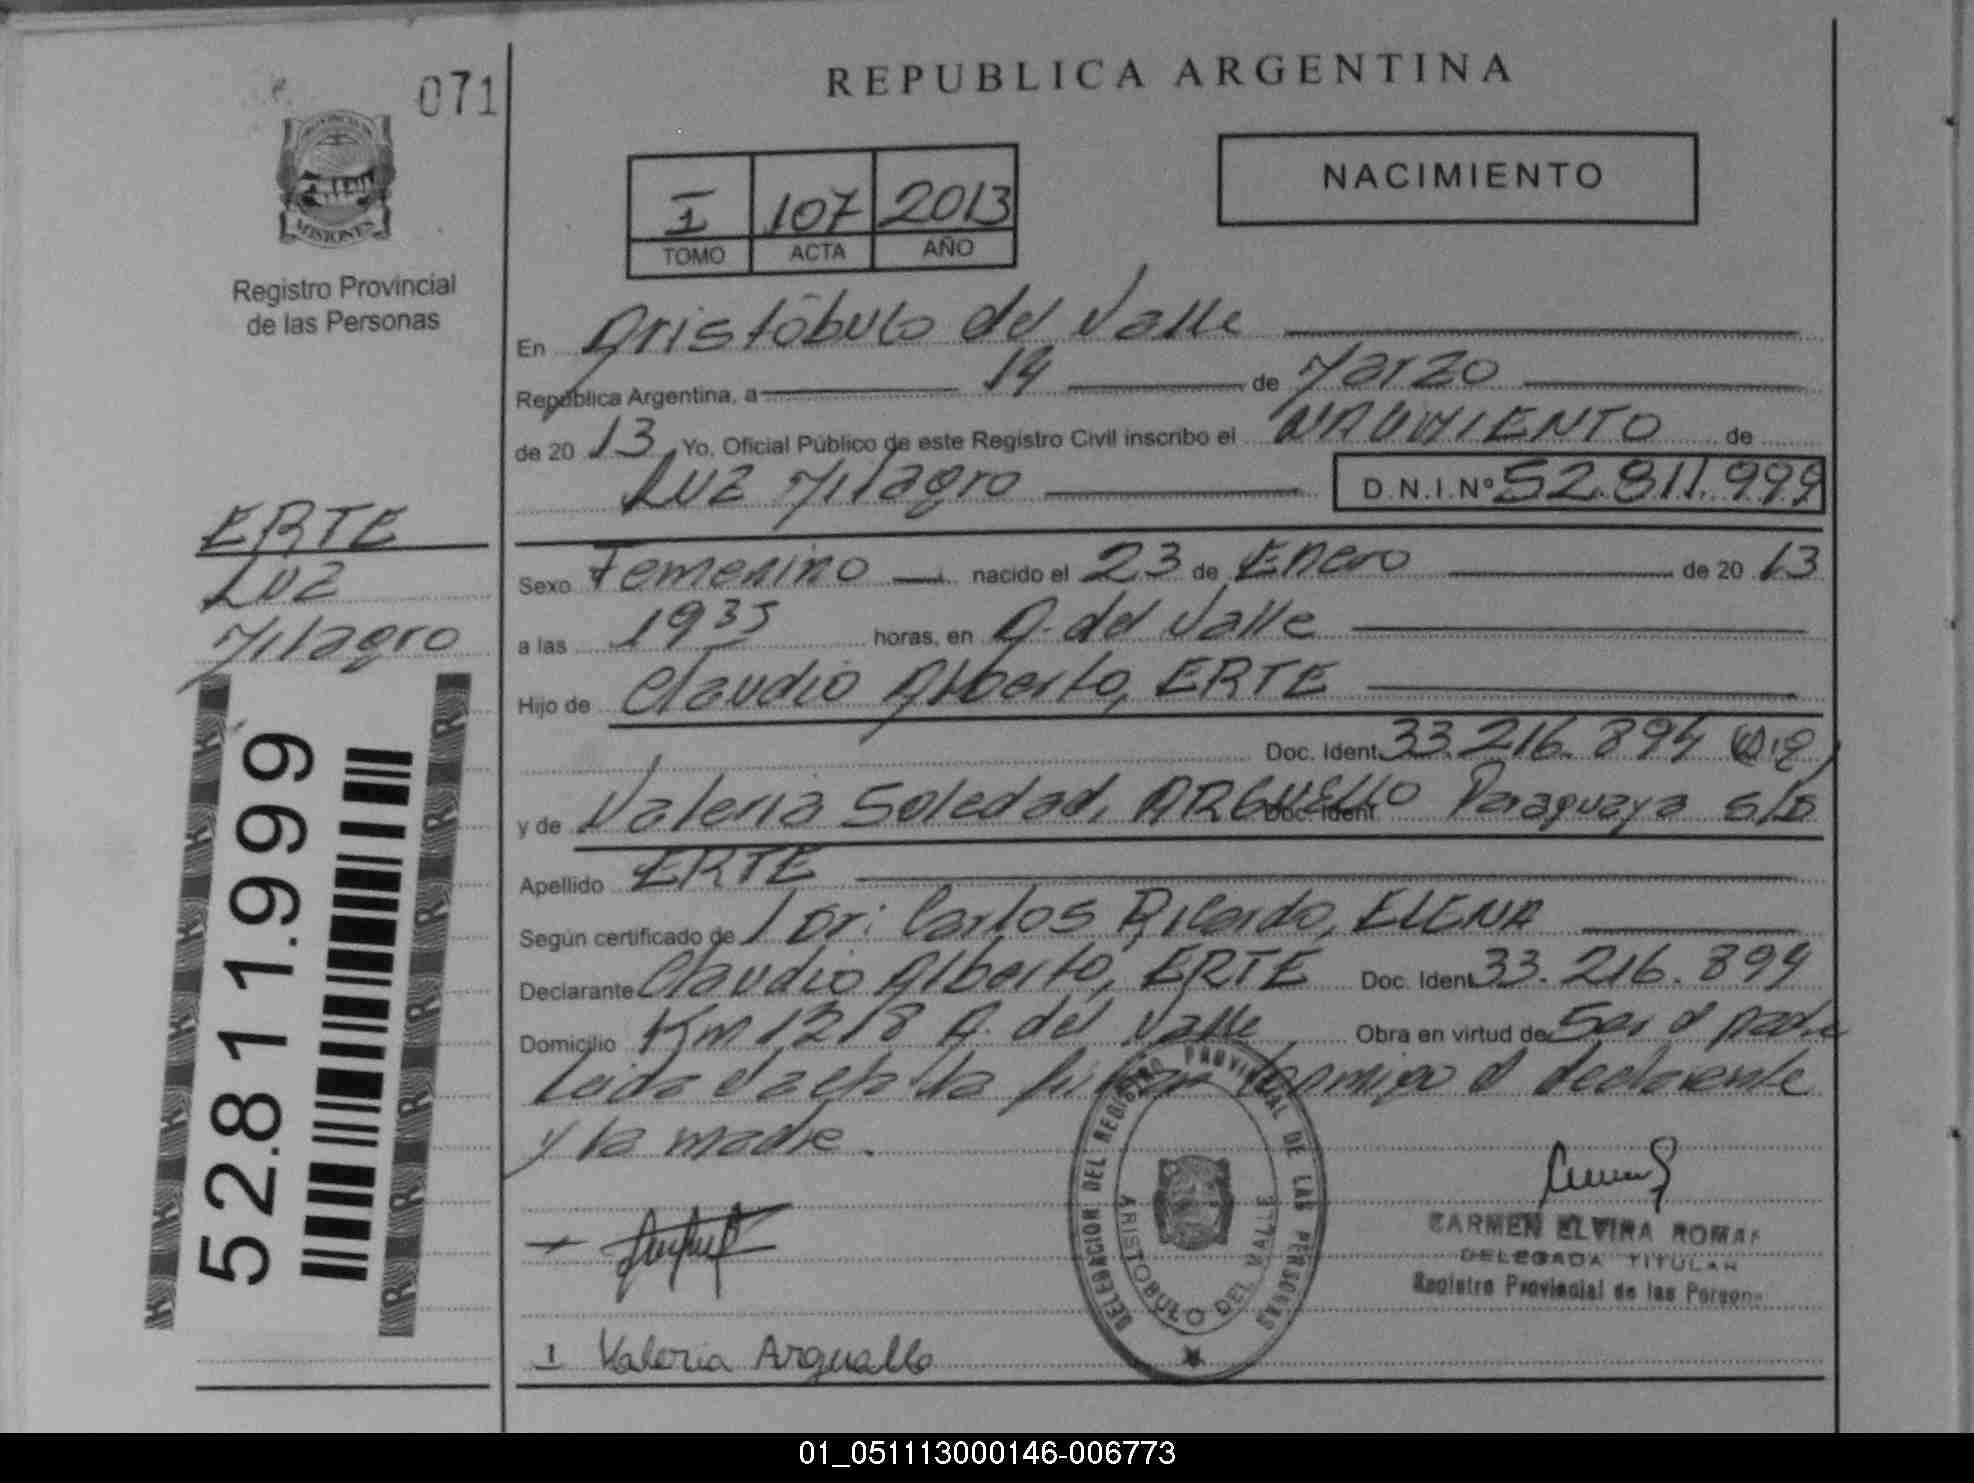 071
PROVINCIA DE
MISIONES
Registro Provincial
de las Personas
ERTE
Luz
Milagro
52.811.999
REPUBLICA ARGENTINA
NACIMIENTO
I 107 2013
TOMO ACTA AÑO
En Aristóbulo del Valle
República Argentina, a 14 de Marzo
de 20 13 Yo, Oficial Público de este Registro Civil inscribo el NACIMIENTO de
Luz Milagro D.N.I.Nº 52.811.999
Sexo Femenino nacido el 23 de Enero de 20 13
a las 19 35 horas, en A. del Valle
Hijo de Claudio Alberto, ERTE
Doc. Ident. 33.216.894
y de Valeria Soledad, ARGUELLO Doc. Ident. Paraguaya S/D
Apellido ERTE
Según certificado de Dr: Carlos Ricardo, ELENA
Declarante Claudio Alberto, ERTE Doc. Ident. 33.216.894
Domicilio Km 1218 A. del Valle Obra en virtud de Ser el padre
Leida el acta la firman conmigo el declarante
y la madre.
DELEGACION DEL REGISTRO PROVINCIAL DE LAS PERSONAS
ARISTOBULO DEL VALLE
CARMEN ELVIRA ROMAN
DELEGADA TITULAR
Registro Provincial de las Persona
Valeria Arguello
01_051113000146-006773